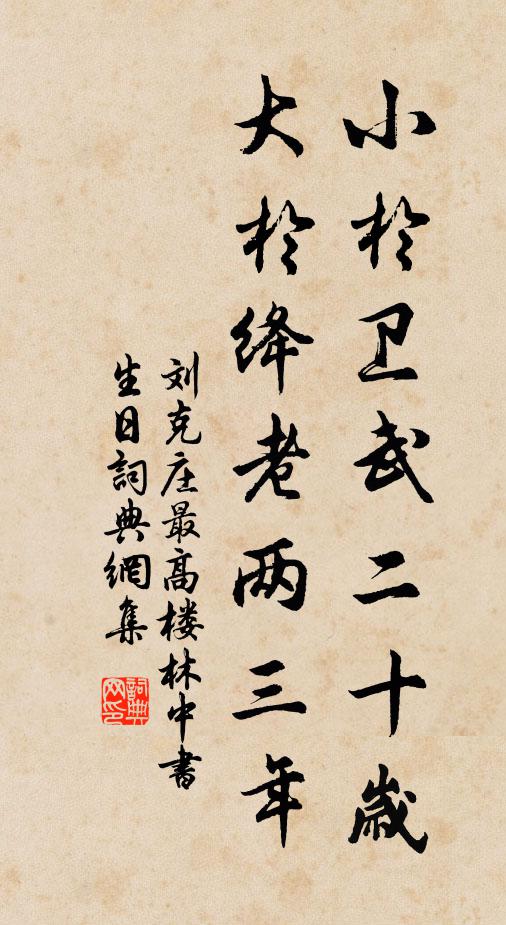 小於卫武二十歲
大於绛老两三年
刘克庄最高楼林中書
生日詞典網集
詞典网印